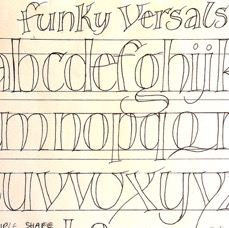 funky Versals
abcdefghijk
mnopqr
uvwxyz
SHAPE